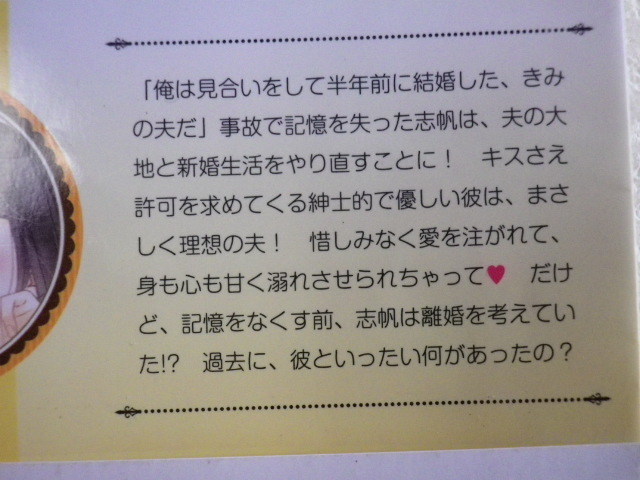 「俺は見合いをして半年前に結婚した、きみ
の夫だ」事故で記憶を失った志帆は、夫の大
地と新婚生活をやり直すことに！　キスさえ
許可を求めてくる紳士的で優しい彼は、まさ
しく理想の夫！　惜しみなく愛を注がれて、
身も心も甘く溺れさせられちゃって♥　だけ
ど、記憶をなくす前、志帆は離婚を考えてい
た!?　過去に、彼といったい何があったの？